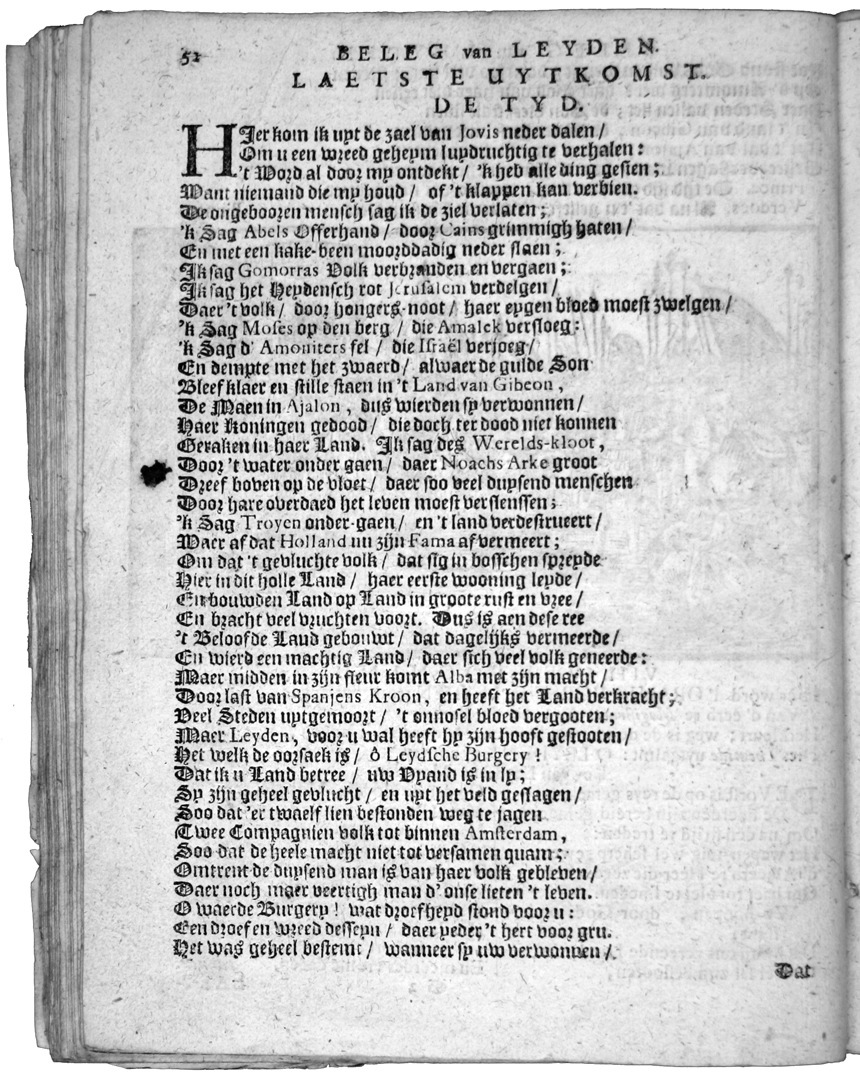 52
BELEG van LEYDEN.
LAETSTE UYTKOMST.
DE TYD.
HIer kom ik uyt de zael van Jovis neder dalen /
Om u een wreed geheym luydruchtig te verhalen:
't Word al door my ontdekt / 'k heb alle ding gesien;
Want niemand die my houd / of 't klappen kan verbien.
De ongebooren mensch sag ik de ziel verlaten;
'k Sag Abels Offerhand / door Cains grimmigh haten /
En met een kake-been moorddadig neder slaen;
Ik sag Gomorras Volk verbranden en vergaen;
Ik sag het Heydensch rot Jerusalem verdelgen /
Daer 't volk / door hongers-noot / haer eygen bloed moest zwelgen /
'k Sag Moses op den berg / die Amalek versloeg:
'k Sag d' Amoniters fel / die Israël verjoeg /
En dempte met het zwaerd / alwaer de gulde Son
Bleef klaer en stille staen in 't Land van Gibeon,
De Maen in Ajalon, dus wierden sy verwonnen /
Haer Koningen gedood / die doch ter dood niet konnen
Geraken in haer Land. Ik sag des Werelds-kloot,
Door 't water onder gaen / daer Noachs Arke groot
Dreef boven op de vloet / daer soo veel duysend menschen
Door hare overdaed het leven moest verslenssen;
'k Sag Troyen onder-gaen / en 't land verdestrueert /
Waer af dat Holland nu zijn Fama af vermeert;
Om dat 't gevluchte volk / dat sig in bosschen spreyde
Hier in dit holle Land / haer eerste wooning leyde /
En bouwden Land op Land in groote rust en vree /
En bracht veel vruchten voort. Dus is aen dese ree
't Beloofde Land gebouwt / dat dagelijks vermeerde /
En wierd een machtig Land / daer sich veel volk geneerde:
Maer midden in zijn fleur komt Alba met zijn macht /
Door last van Spanjens Kroon, en heeft het Land verkracht;
Veel Steden uytgemoort / 't onnosel bloed vergooten;
Maer Leyden, voor u wal heeft hy zijn hooft gestooten /
Het welk de oorsaek is / ô Leydsche Burgery!
Dat ik u Land betree / uw Vyand is in ly;
Sy zijn geheel gevlucht / en uyt het veld geslagen /
Soo dat 'er twaelf lien bestonden weg te jagen
Twee Compagnien volk tot binnen Amsterdam,
Soo dat de heele macht niet tot versamen quam;
Omtrent de duysend man is van haer volk gebleven /
Daer noch maer veertigh man d' onse lieten 't leven.
O waerde Burgery! wat droefheyd stond voor u:
Een droef en wreed desseyn / daer yeder 't hert voor gru.
Het was geheel bestemt / wanneer sy uw verwonnen /
Dat